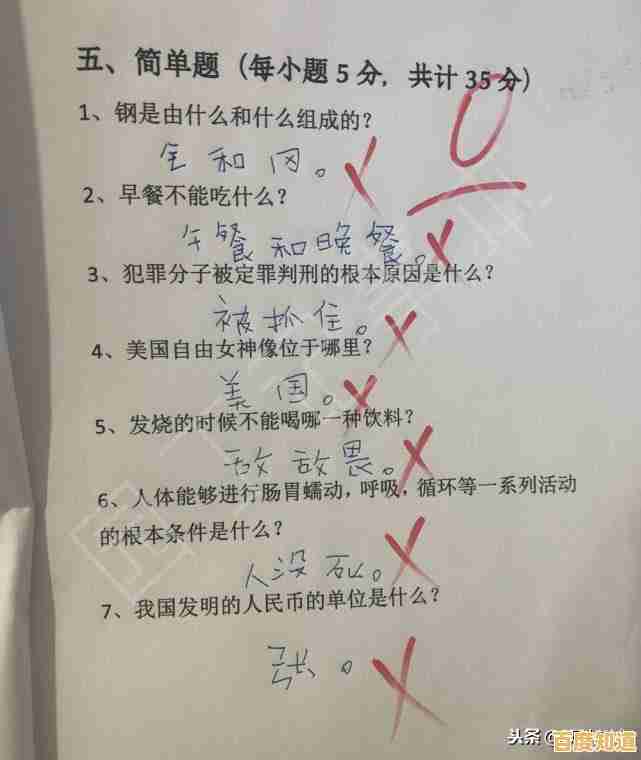 五、简单题（每小题5分，共计35分）
0
1、钢是由什么和什么组成的？
金和冈。
2、早餐不能吃什么？
午餐和晚餐。
3、犯罪分子被定罪判刑的根本原因是什么？
被抓住。
4、美国自由女神像位于哪里？
美国。
5、发烧的时候不能喝哪一种饮料？
敌敌畏。
6、人体能够进行肠胃蠕动，呼吸，循环等一系列活动
的根本条件是什么？
人没死。
7、我国发明的人民币的单位是什么？
张。
头条@
百度知道